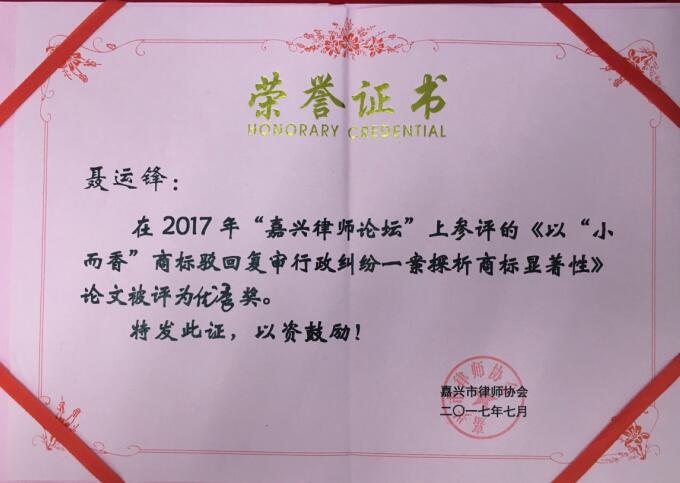 荣誉证书
HONORARY CREDENTIAL
聂运锋：
在2017年“嘉兴律师论坛”上参评的《以“小
而香”商标驳回复审行政纠纷一案探析商标显著性》
论文被评为优秀奖。
特发此证，以资鼓励！
嘉兴市律师协会
嘉兴市律师协会
二〇一七年七月